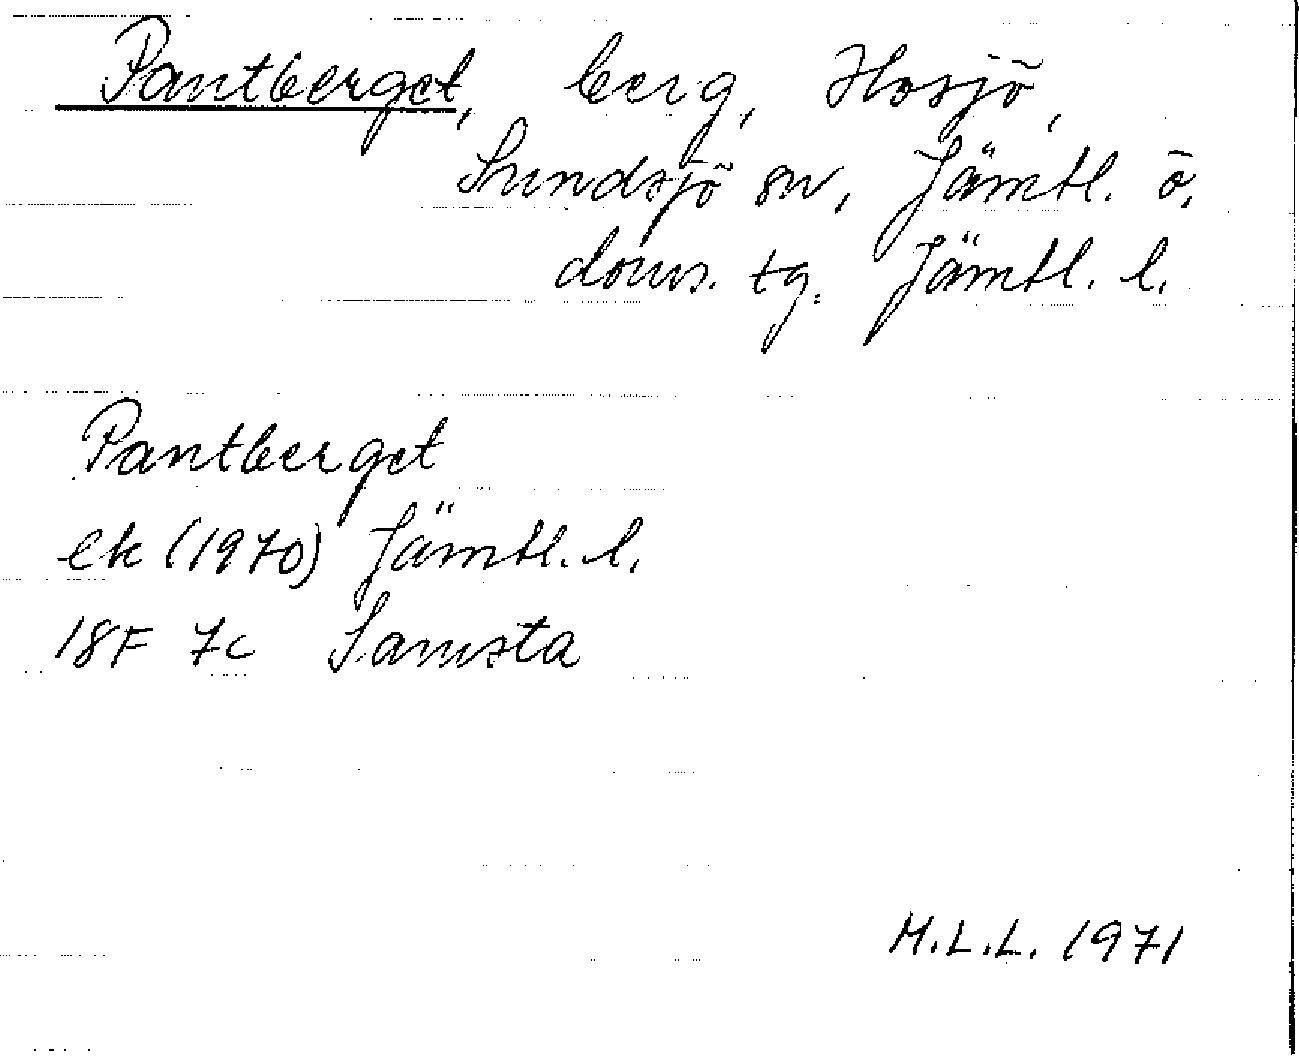 Pantberget, berg, Hosjö,
Sundsjö sn, Jämtl. ö.
doms. tg. Jämtl. l.
Pantberget
ek (1970) Jämtl. l.
18F 7c Samsta
M.L.L. 1971